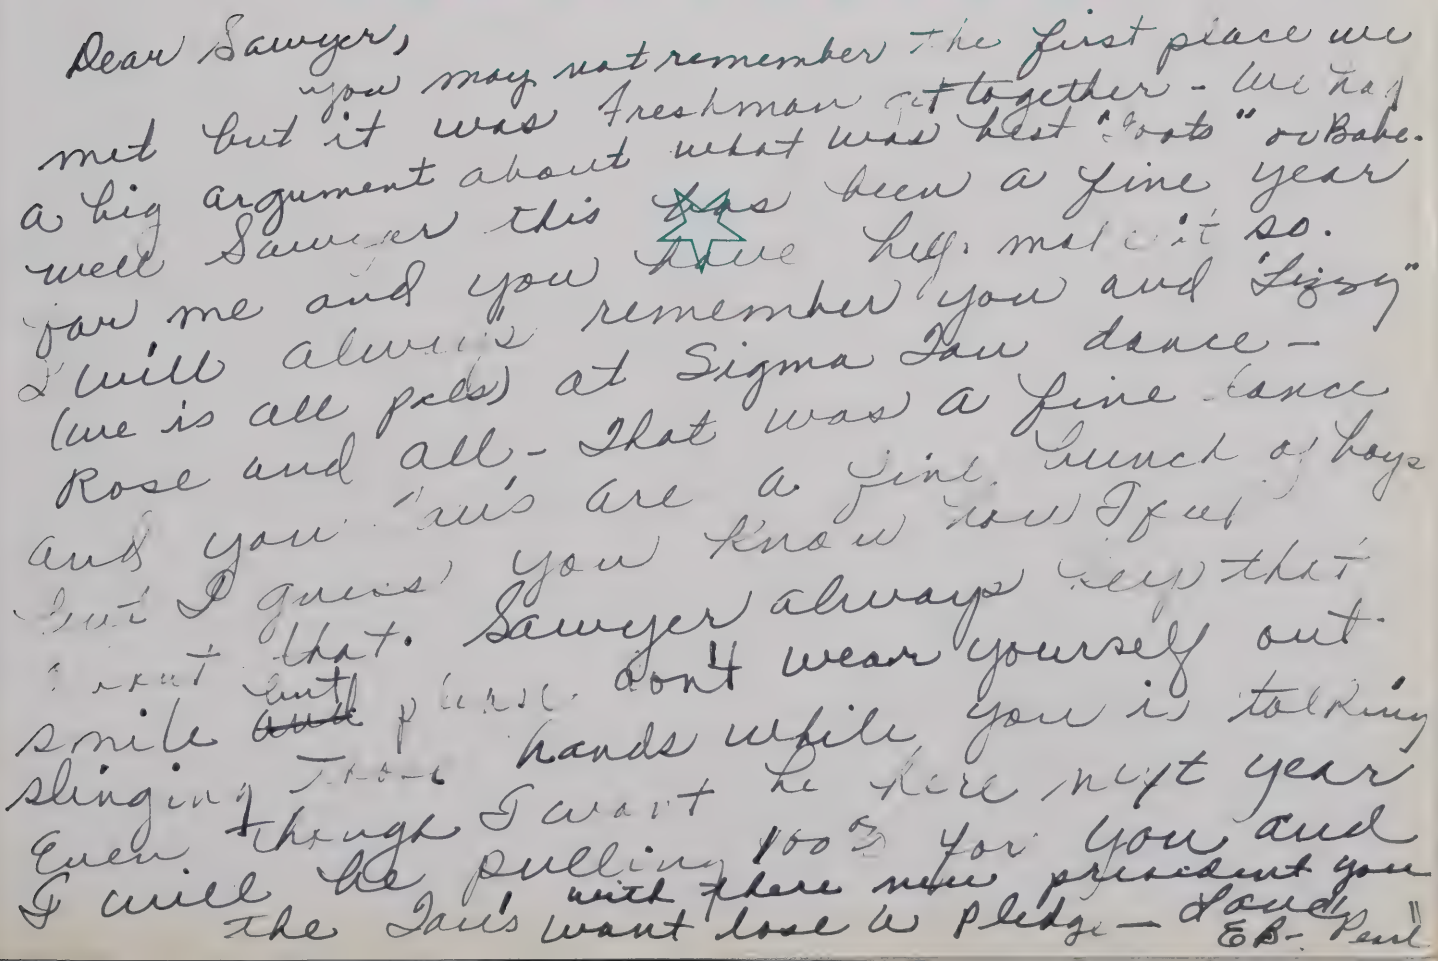 Dear Sawyer,
you may not remember the first place we
met but it was Freshman get together - We had
a big argument about what was best "Toots" or Babe.
well Sawyer this has been a fine year
for me and you have help make it so.
I will always remember you and "Lizzy"
(we is all pals) at Sigma Tau dance -
Rose and all - That was a fine dance
and you Tau's are a fine bunch of boys
but I guess you know how I feel
about that. Sawyer always keep that
smile but please don't wear yourself out
slinging those hands while you is talking
Even though I won't be here next year
I will be pulling 100% for you and
the Tau's with there new president you
want lose a pledge - Love,
EB- "Pearl"